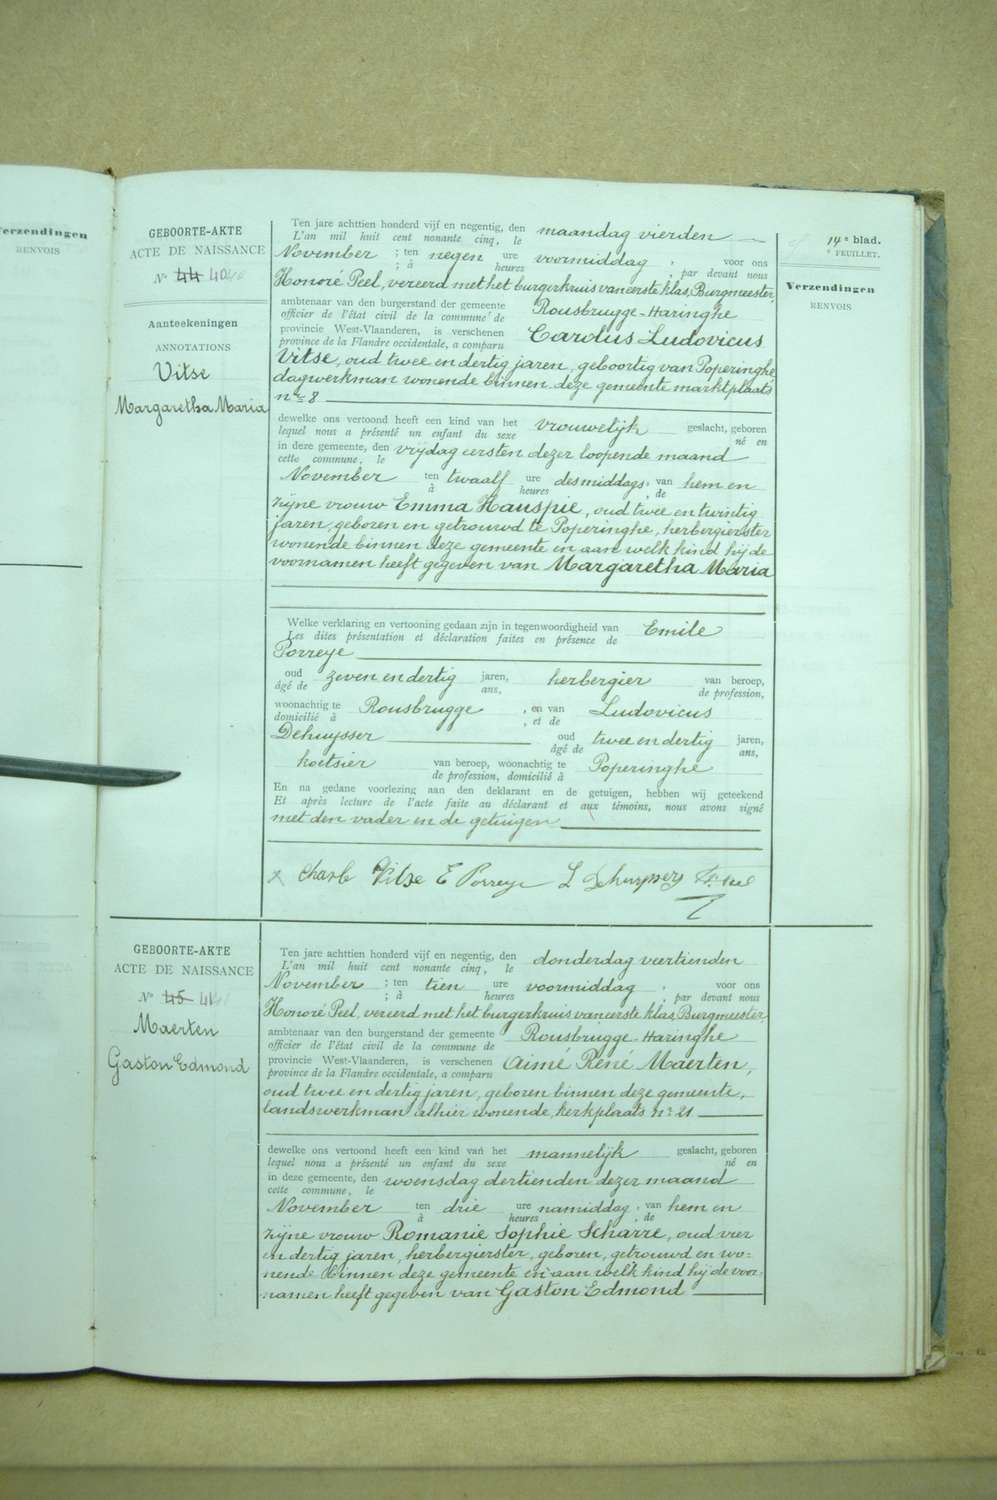 Verzendingen
RENVOIS
14e blad.
e FEUILLET.
Verzendingen
RENVOIS
GEBOORTE-AKTE
ACTE DE NAISSANCE
No 44 40
Aanteekeningen
ANNOTATIONS
Vitse
Margaretha Maria
Ten jare achttien honderd vijf en negentig, den maandag vierden
L'an mil huit cent nonante cinq, le
November ; ten negen ure voormiddag , voor ons
; à heures , par devant nous
Honoré Peel, vereerd met het burgerkruis van eerste klas, Burgmeester,
ambtenaar van den burgerstand der gemeente Rousbrugge-Haringhe
officier de l'état civil de la commune de
provincie West-Vlaanderen, is verschenen Carolus Ludovicus
province de la Flandre occidentale, a comparu
Vitse, oud twee en dertig jaren, geboortig van Poperinghe,
dagwerkman wonende binnen deze gemeente marktplaats
no 8
dewelke ons vertoond heeft een kind van het vrouwelijk geslacht, geboren
lequel nous a présenté un enfant du sexe né en
in deze gemeente, den vrijdag eersten dezer loopende maand
cette commune, le
November ten twaalf ure des middags, van hem en
à heures , de
zijne vrouw Emma Hauspie, oud twee en twintig
jaren, geboren en getrouwd te Poperinghe, herbergierster
wonende binnen deze gemeente en aan welk kind hij de
voornamen heeft gegeven van Margaretha Maria
Welke verklaring en vertooning gedaan zijn in tegenwoordigheid van Emile
Les dites présentation et déclaration faites en présence de
Porreye
oud zeven en dertig jaren, herbergier van beroep,
âgé de ans, de profession,
woonachtig te Rousbrugge , en van Ludovicus
domicilié à , et de
Dehuysser oud twee en dertig jaren,
âgé de ans,
koetsier van beroep, woonachtig te Poperinghe
de profession, domicilié à
En na gedane voorlezing aan den deklarant en de getuigen, hebben wij geteekend
Et après lecture de l'acte faite au déclarant et aux témoins, nous avons signé
met den vader en de getuigen
Charle Vitse E Porreye L
GEBOORTE-AKTE
ACTE DE NAISSANCE
No 45 41
Maerten
Gaston Edmond
Ten jare achttien honderd vijf en negentig, den donderdag veertienden
L'an mil huit cent nonante cinq, le
November ; ten tien ure voormiddag , voor ons
; à heures , par devant nous
Honoré Peel, vereerd met het burgerkruis van eerste klas, Burgmeester,
ambtenaar van den burgerstand der gemeente Rousbrugge-Haringhe
officier de l'état civil de la commune de
provincie West-Vlaanderen, is verschenen Aimé René Maerten,
province de la Flandre occidentale, a comparu
oud twee en dertig jaren, geboren binnen deze gemeente,
landswerkman alhier wonende, kerkplaats no 21
dewelke ons vertoond heeft een kind van het mannelijk geslacht, geboren
lequel nous a présenté un enfant du sexe né en
in deze gemeente, den woensdag dertienden dezer maand
cette commune, le
November ten drie ure namiddag, van hem en
à heures , de
zijne vrouw Romanie Sophie Scharre, oud vier
en dertig jaren, herbergierster, geboren, getrouwd en wo-
nende binnen deze gemeente en aan welk kind hij de voor-
namen heeft gegeven van Gaston Edmond